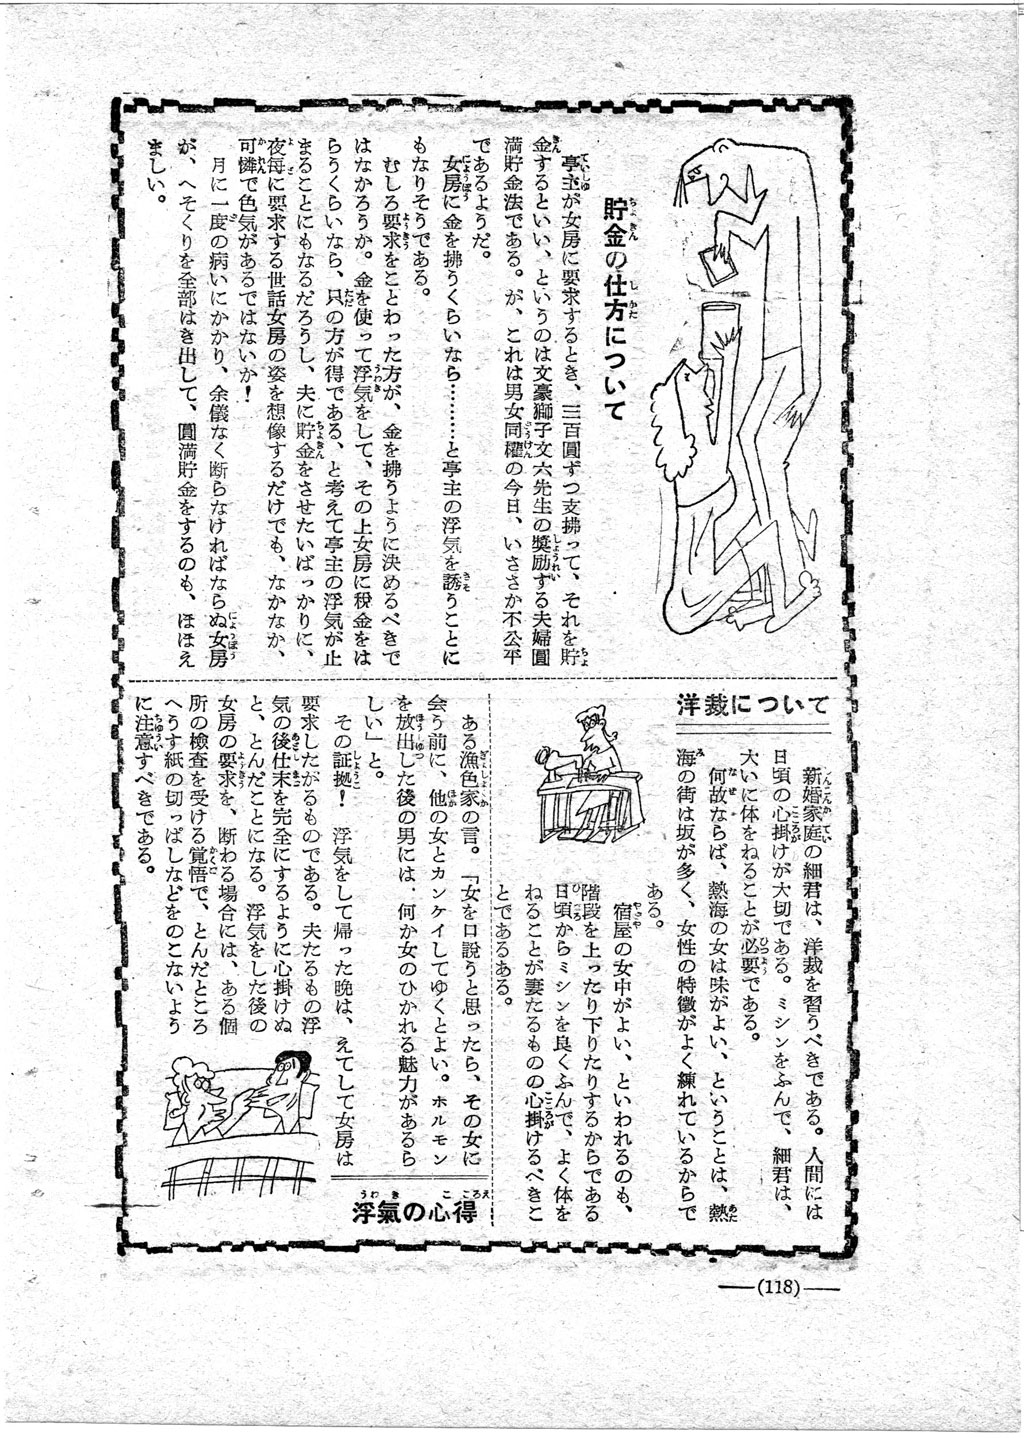 貯金の仕方について
亭主が女房に要求するとき、三百圓ずつ支拂って、それを貯
金するといい、というのは文豪獅子文六先生の奬励する夫婦圓
満貯金法である。が、これは男女同權の今日、いささか不公平
であるようだ。
女房に金を拂うくらいなら………と亭主の浮気を誘うことに
もなりそうである。
むしろ要求をことわった方が、金を拂うように決めるべきで
はなかろうか。金を使って浮気をして、その上女房に税金をは
らうくらいなら、只の方が得である、と考えて亭主の浮気が止
まることにもなるだろうし、夫に貯金をさせたいばっかりに、
夜毎に要求する世話女房の姿を想像するだけでも、なかなか、
可憐で色気があるではないか!
月に一度の病いにかかり、余儀なく断らなければならぬ女房
が、へそくりを全部はき出して、圓満貯金をするのも、ほほえ
ましい。
洋裁について
新婚家庭の細君は、洋裁を習うべきである。人間には
日頃の心掛けが大切である。ミシンをふんで、細君は、
大いに体をねることが必要である。
何故ならば、熱海の女は味がよい、ということは、熱
海の街は坂が多く、女性の特徴がよく練れているからで
ある。
宿屋の女中がよい、といわれるのも、
階段を上ったり下りたりするからである
日頃からミシンを良くふんで、よく体を
ねることが妻たるものの心掛けるべきこ
とであるある。
浮氣の心得
ある漁色家の言。「女を口説うと思ったら、その女に
会う前に、他の女とカンケイしてゆくとよい。ホルモン
を放出した後の男には、何か女のひかれる魅力があるら
しい」と。
その証拠!　浮気をして帰った晩は、えてして女房は
要求したがるものである。夫たるもの浮
気の後仕末を完全にするように心掛けぬ
と、とんだことになる。浮気をした後の
女房の要求を、断わる場合には、ある個
所の検査を受ける覚悟で、とんだところ
へうす紙の切っぱしなどをのこないよう
に注意すべきである。
(118)